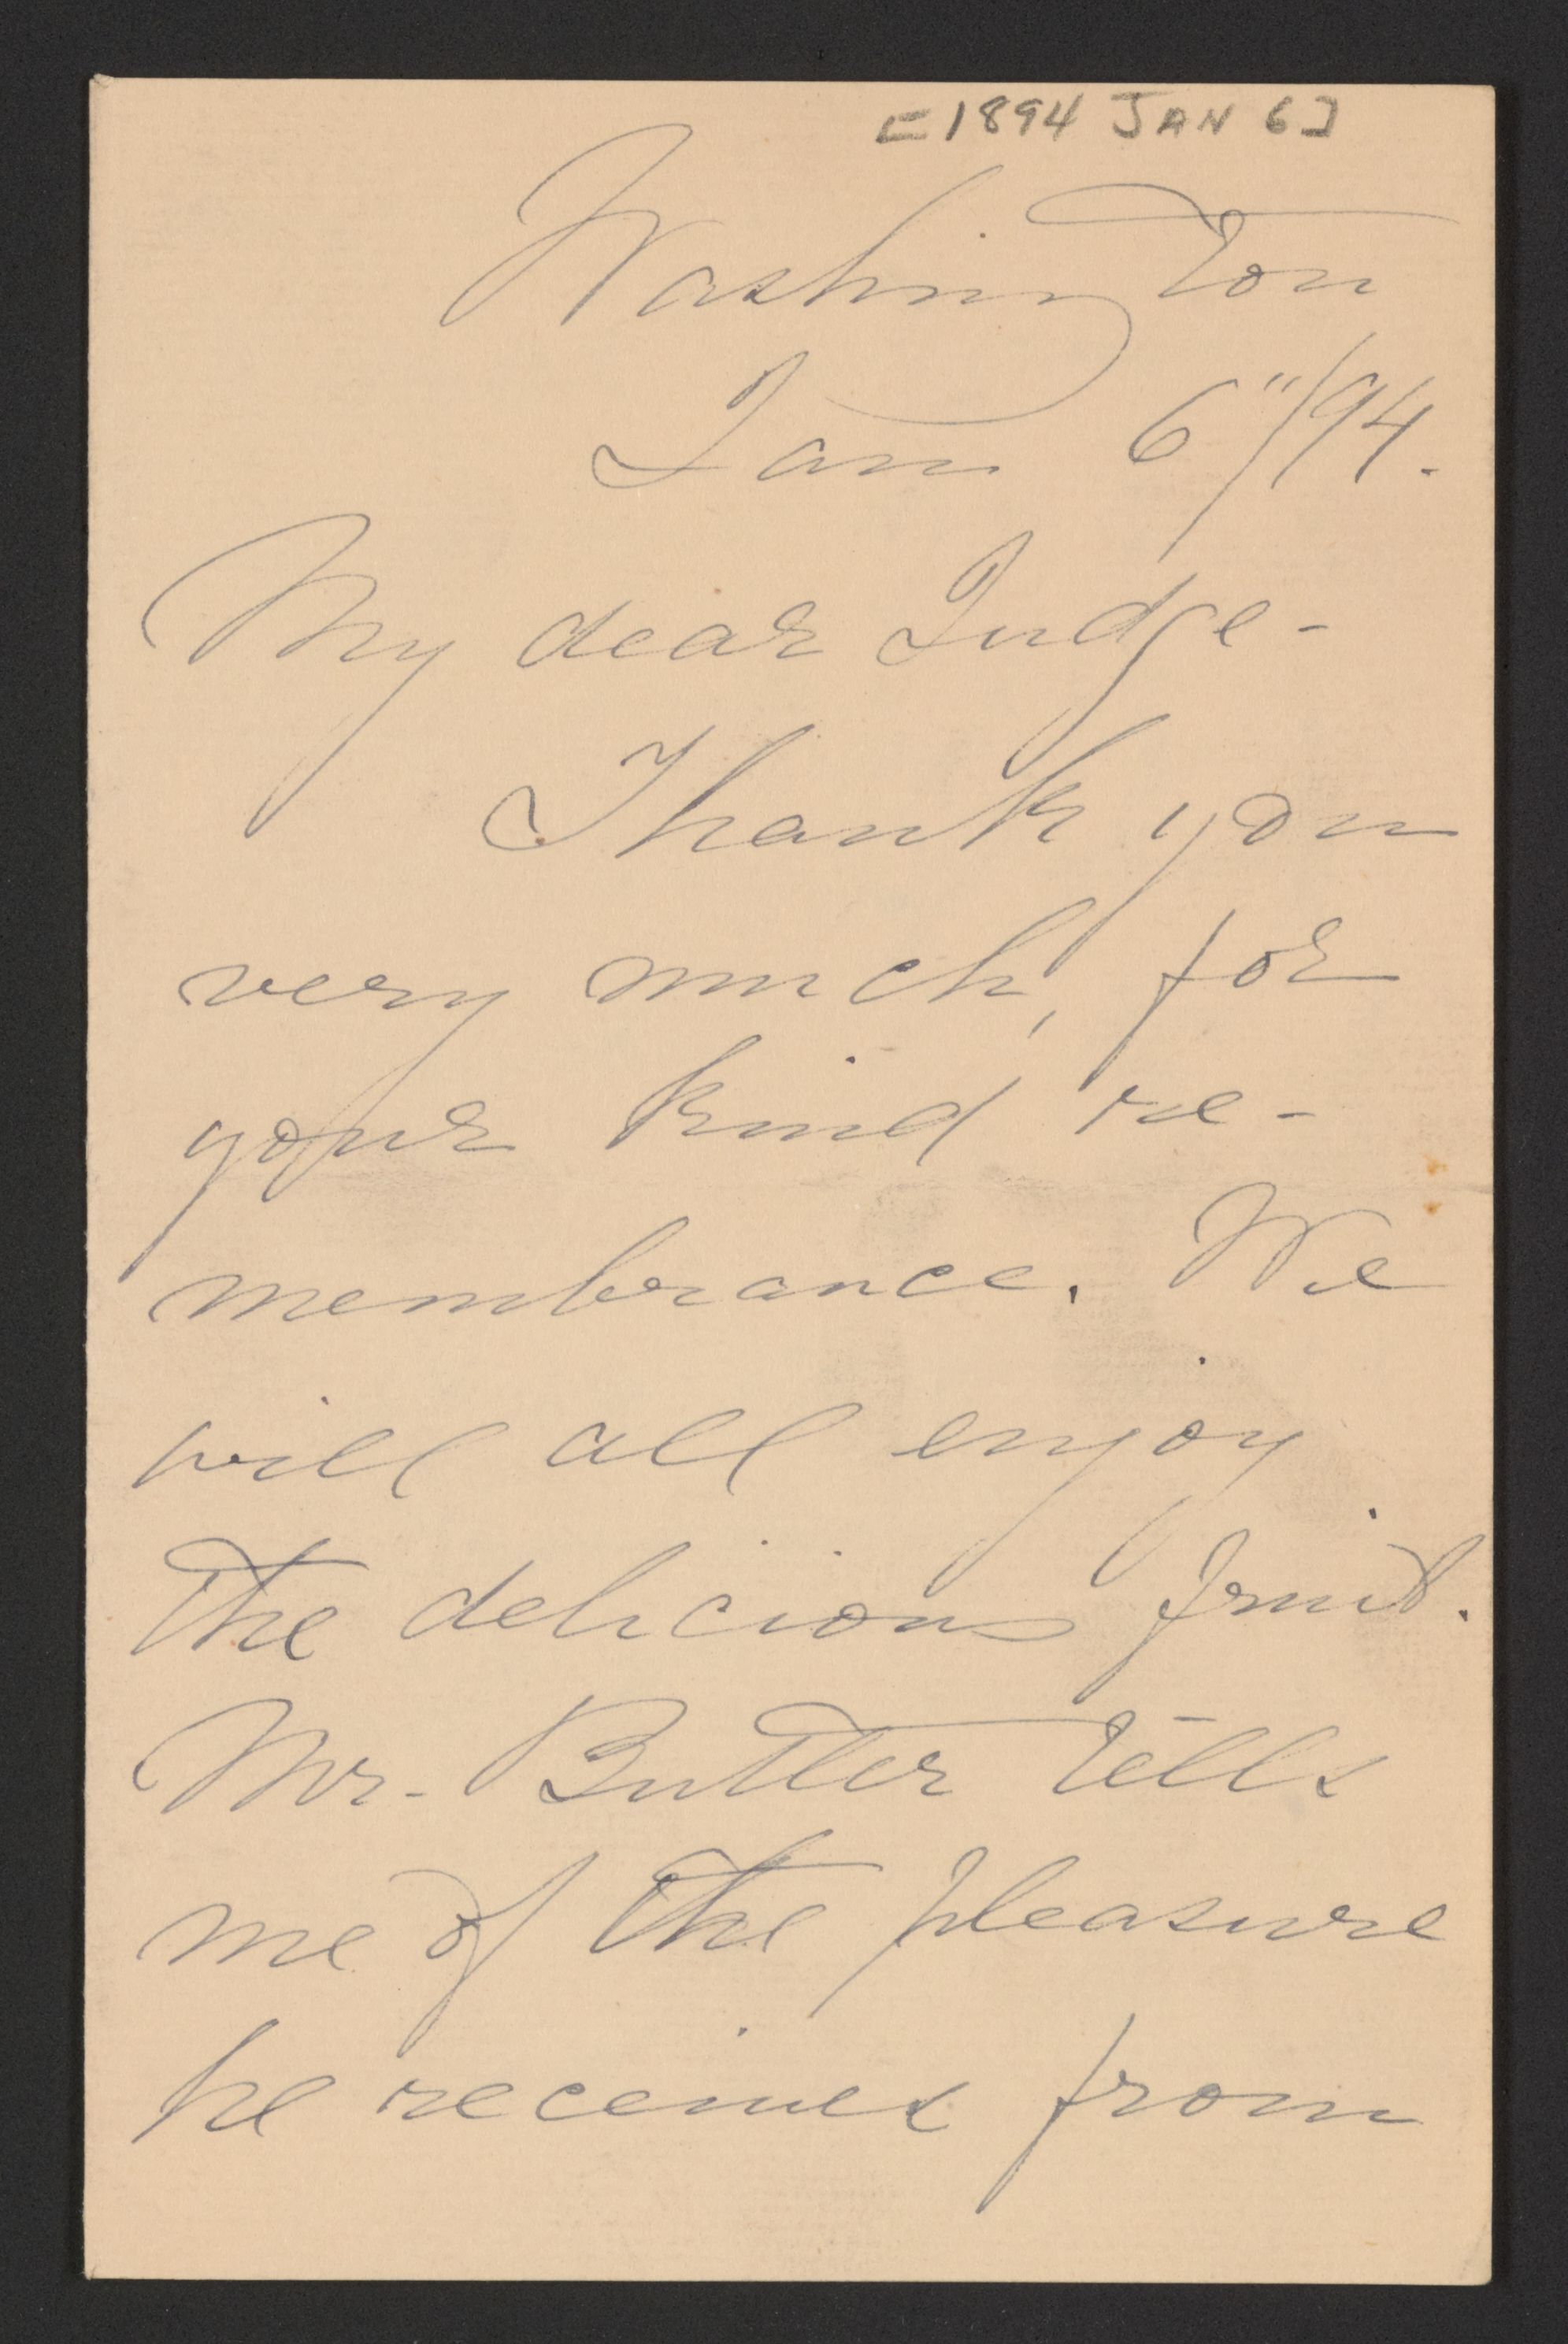 [1894 JAN 6]
Washington
Jan 6"/94.
My dear Judge-
Thank you
very much, for
your kind re-
membrance. We
will all enjoy
the delicious fruit.
Mr. Butler tells
me of the pleasure
he receives from